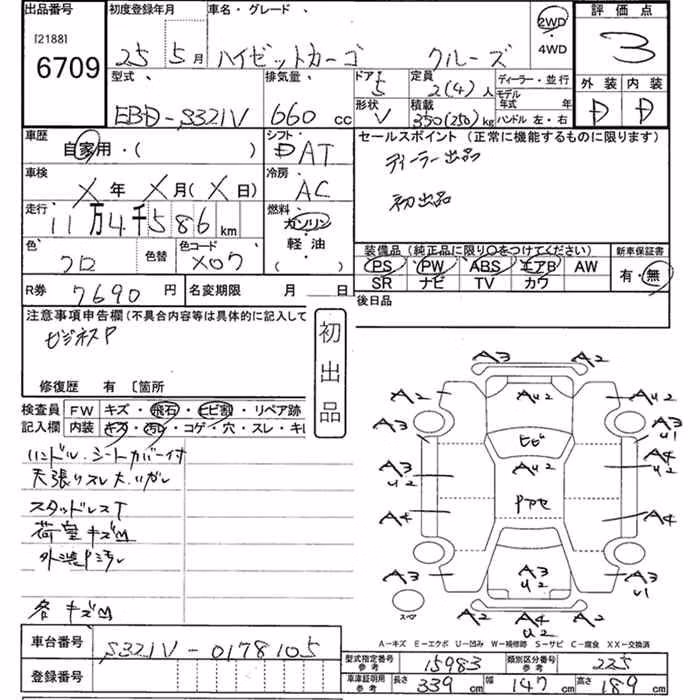 出品番号
[2188]
6709
初度登録年月
25 5月
車名・グレード
ハイゼットカーゴ クルーズ
2WD
・
4WD
評価点
3
外装 内装
D D
型式
EBD-S321V
排気量
660 cc
ドア
5
形状
V
定員
2(4)人
積載
350(250)kg
ディーラー・並行
モデル
年式 年
ハンドル 左・右
車歴
自家用・( )
シフト
DAT
セールスポイント (正常に機能するものに限ります)
ディーラー出品
初出品
車検
X年 X月(X日)
冷房
AC
走行
11万4千586km
燃料
ガソリン
・
軽油
・
( )
色
クロ
色替
色コード
X07
装備品 (純正品に限り○をつけてください)
PS PW ABS エアB AW
SR ナビ TV カワ
新車保証書
有・無
R券
7690円
名変期限 月 日
後日品
注意事項申告欄(不具合内容等は具体的に記入して
ビジネスP
修復歴 有〔箇所
初出品
検査員
記入欄
FW キズ・飛石・ヒビ割・リペア跡
内装 キズ・汚レ・コゲ・穴・スレ・キレ
ハンドル・シートカバー付
天張りスレ大・ハガレ
スタッドレスT
荷室キズM
外装P汚レ
各キズM
A3 A2
A2 AU2 A2
A3 ヒビ A3
U1
A3
U2 AU2 A4
U2
A4 Pアセ A4
A3 A3
U2 A3
U1
スペア
A2 A4
U2 A2
A-キズ E-エクボ U-凹み W-補修跡 S-サビ C-腐食 XX-交換済
車台番号
S321V-0178105
登録番号
型式指定番号
参考
15983
類別区分番号
参考
225
車庫証明用
参考
長さ 339 cm 幅 147 cm 高さ 189 cm